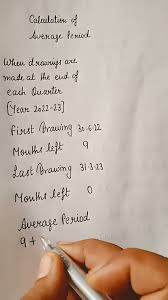 Calculation of
Average Period
When drawings are
made at the end of
each Quarter
[Year 2022-23]
First Drawing 30-6-22
Months left 9
Last Drawing 31-3-23
Months left 0
Average Period
9 +